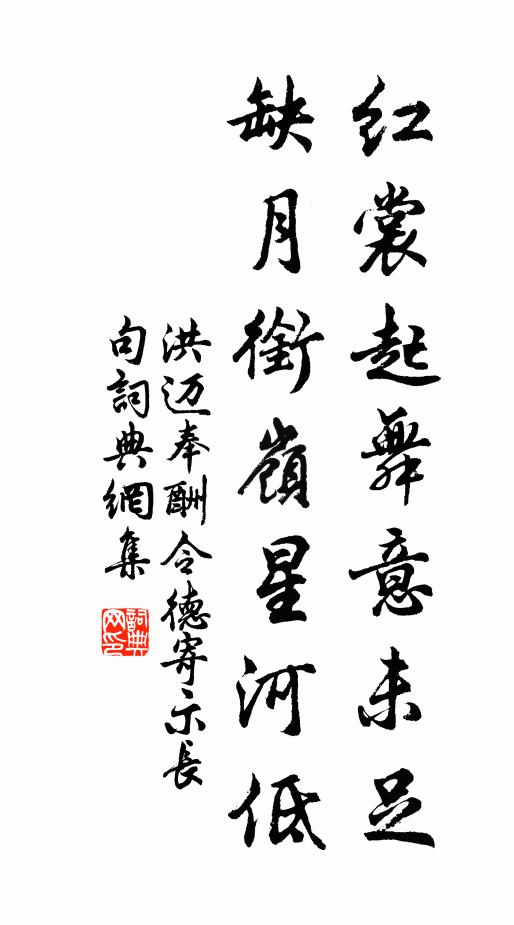 红裳起舞意未足
缺月銜嶺星河低
洪迈奉酬令德寄示長
句詞典網集
詞典
网印